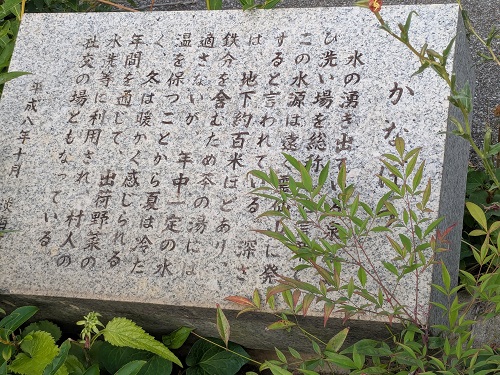 かな
水の湧き出て
び洗い場を総称
この水源は遠
すると言われている 深さ
は、地下約百米ほどあり、
鉄分を含むため茶の湯には
適さないが、年中一定の水
温を保つことから夏は冷た
く、冬は暖かく感じられる
年間を通じて、出荷野菜の
水洗等に利用され、村人の
社交の場ともなっている
平成八年十月